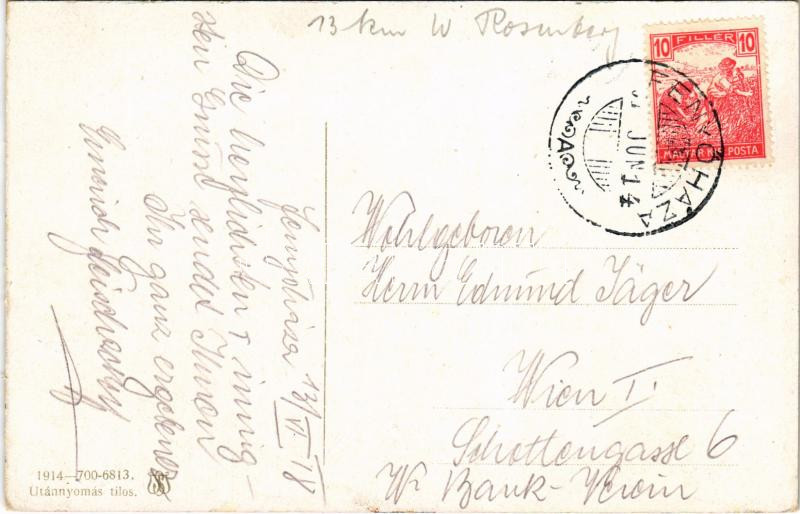 13 km W Rosenberg
10 FILLÉR 10
MAGYAR KIR. POSTA
FENYŐHÁZA
JUN 14
A
Fenyőháza 13/VI. 18
Die herzlichsten, innig-
sten Grüße sendet Ihnen
Ihr ganz ergebener
Wohlgeboren
Herrn Edmund Jäger
Wien I.
Schottengasse 6
W. Bank-Verein
1914—700-6813.
Utánnyomás tilos.